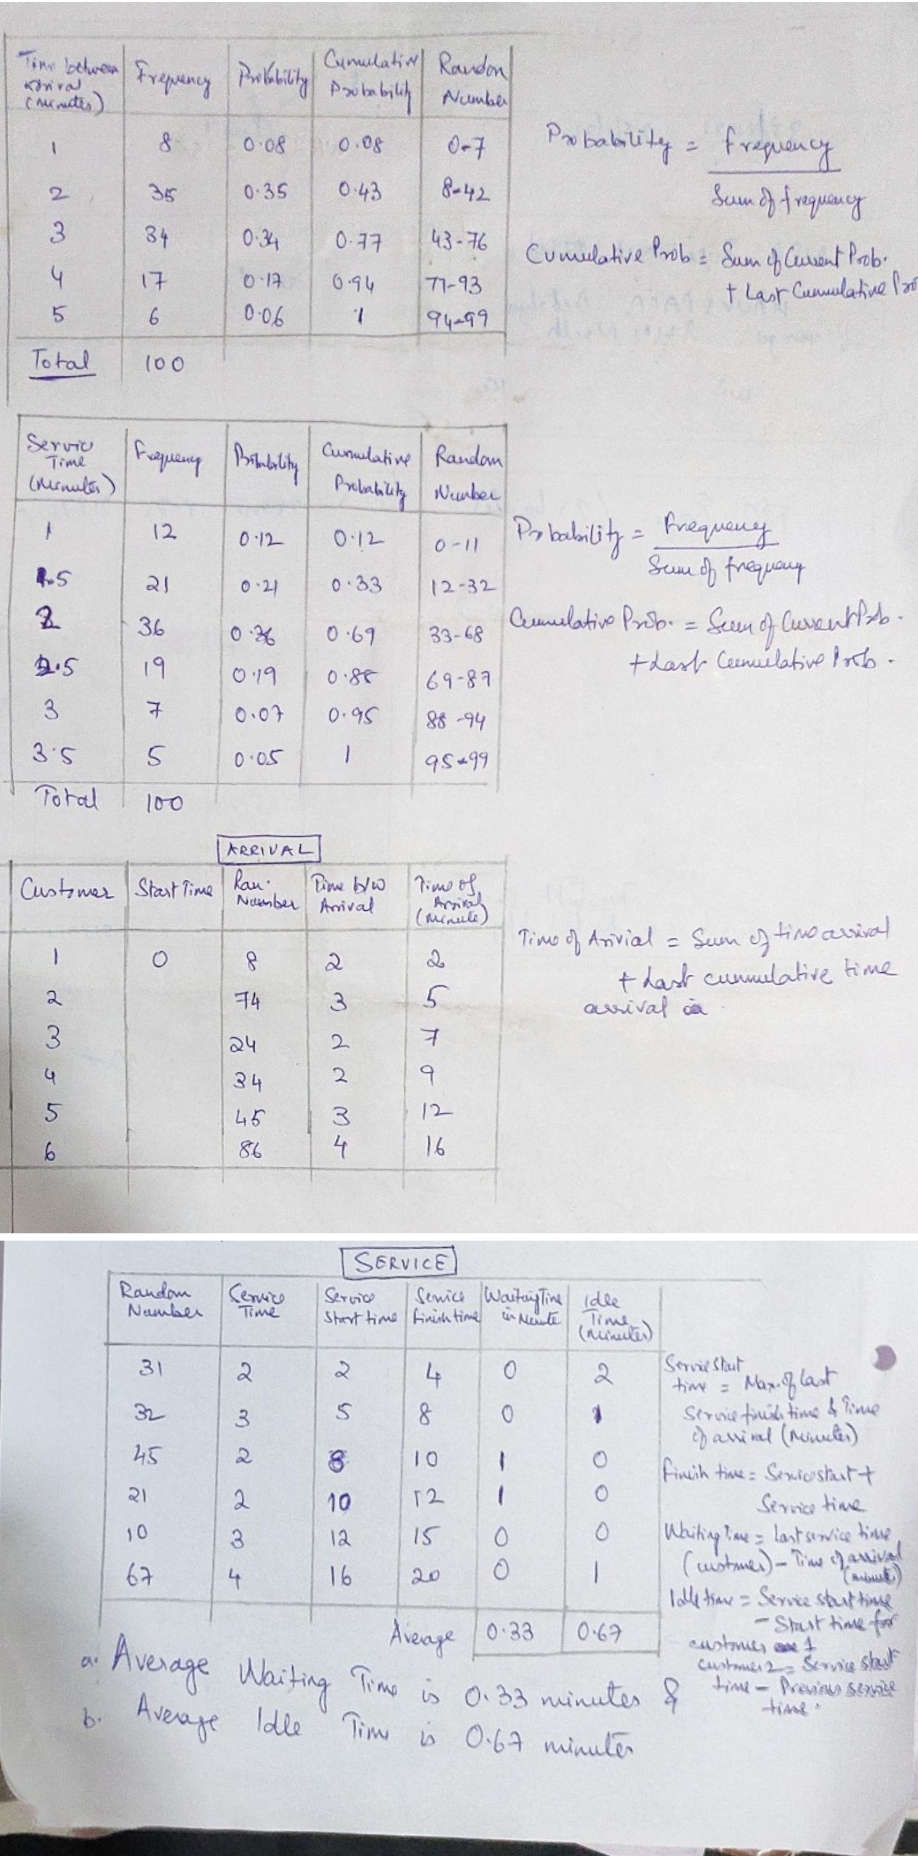 Time between arrival (minutes) Frequency Probability Cumulative Probability Random Number
1 8 0.08 0.08 0-7
2 35 0.35 0.43 8-42
3 34 0.34 0.77 43-76
4 17 0.17 0.94 77-93
5 6 0.06 1 94-99
Total 100
Probability = frequency
Sum of frequency
Cumulative Prob = Sum of Current Prob.
+ Last Cumulative Pro
Servic Time (Minutes) Frequency Probability Cumulative Probability Random Number
1 12 0.12 0.12 0-11
1.5 21 0.21 0.33 12-32
2 36 0.36 0.69 33-68
2.5 19 0.19 0.88 69-87
3 7 0.07 0.95 88-94
3.5 5 0.05 1 95-99
Total 100
Probability = frequency
Sum of frequency
Cumulative Prob. = Sum of Current Prob.
+ Last Cumulative Prob.
ARRIVAL
Customer Start Time Ran. Number Time b/w Arrival Time of Arrival (Minute)
1 0 8 2 2
2 74 3 5
3 24 2 7
4 34 2 9
5 45 3 12
6 86 4 16
Time of Arivial = Sum of time arrival
+ Last cummulative time
arrival
SERVICE
Random Number Service Time Service Start time Service finish time Waiting Time in Minute Idle Time (Minutes)
31 2 2 4 0 2
32 3 5 8 0 1
45 2 8 10 1 0
21 2 10 12 1 0
10 3 12 15 0 0
67 4 16 20 0 1
Average 0.33 0.67
Service start
time = Max. of Last
Service finish time & Time
of arrival (Minutes)
Finish time = Service start +
Service time
Waiting time = Last service time
(customer) - Time of arrival
(minute)
Idle time = Service start time
- Start time for
customer 1
customer 2 = Service start
time - Previous service
time.
a. Average Waiting Time is 0.33 minutes &
b. Average Idle Time is 0.67 minutes